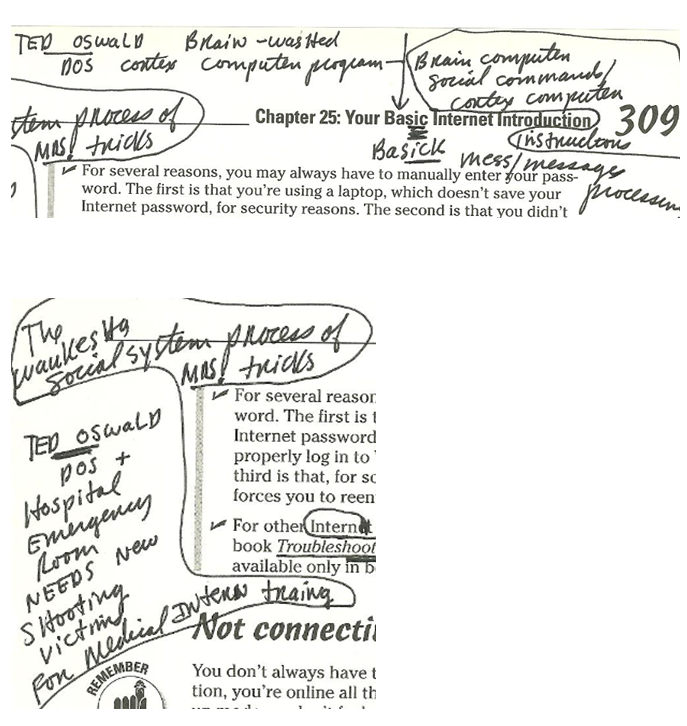 TED OSWALD Brain-washed
DOS contex computer program
Brain computer
social commands/
contex computer
stem process of
MRS! tricks
Chapter 25: Your Basic Internet Introduction 309
Instructions
Basick mess/message
processing
For several reasons, you may always have to manually enter your pass-
word. The first is that you're using a laptop, which doesn't save your
Internet password, for security reasons. The second is that you didn't
The
waukesHa
social system process of
MRS! tricks
For several reason
word. The first is t
Internet password
properly log in to
third is that, for so
forces you to reen
For other Internet
book Troubleshoot
available only in b
TED OSWALD
DOS +
Hospital
Emergency
Room
NEEDS New
SHooting
Victims
For Medical INtern traing
Not connecti
REMEMBER
You don't always have t
tion, you're online all th